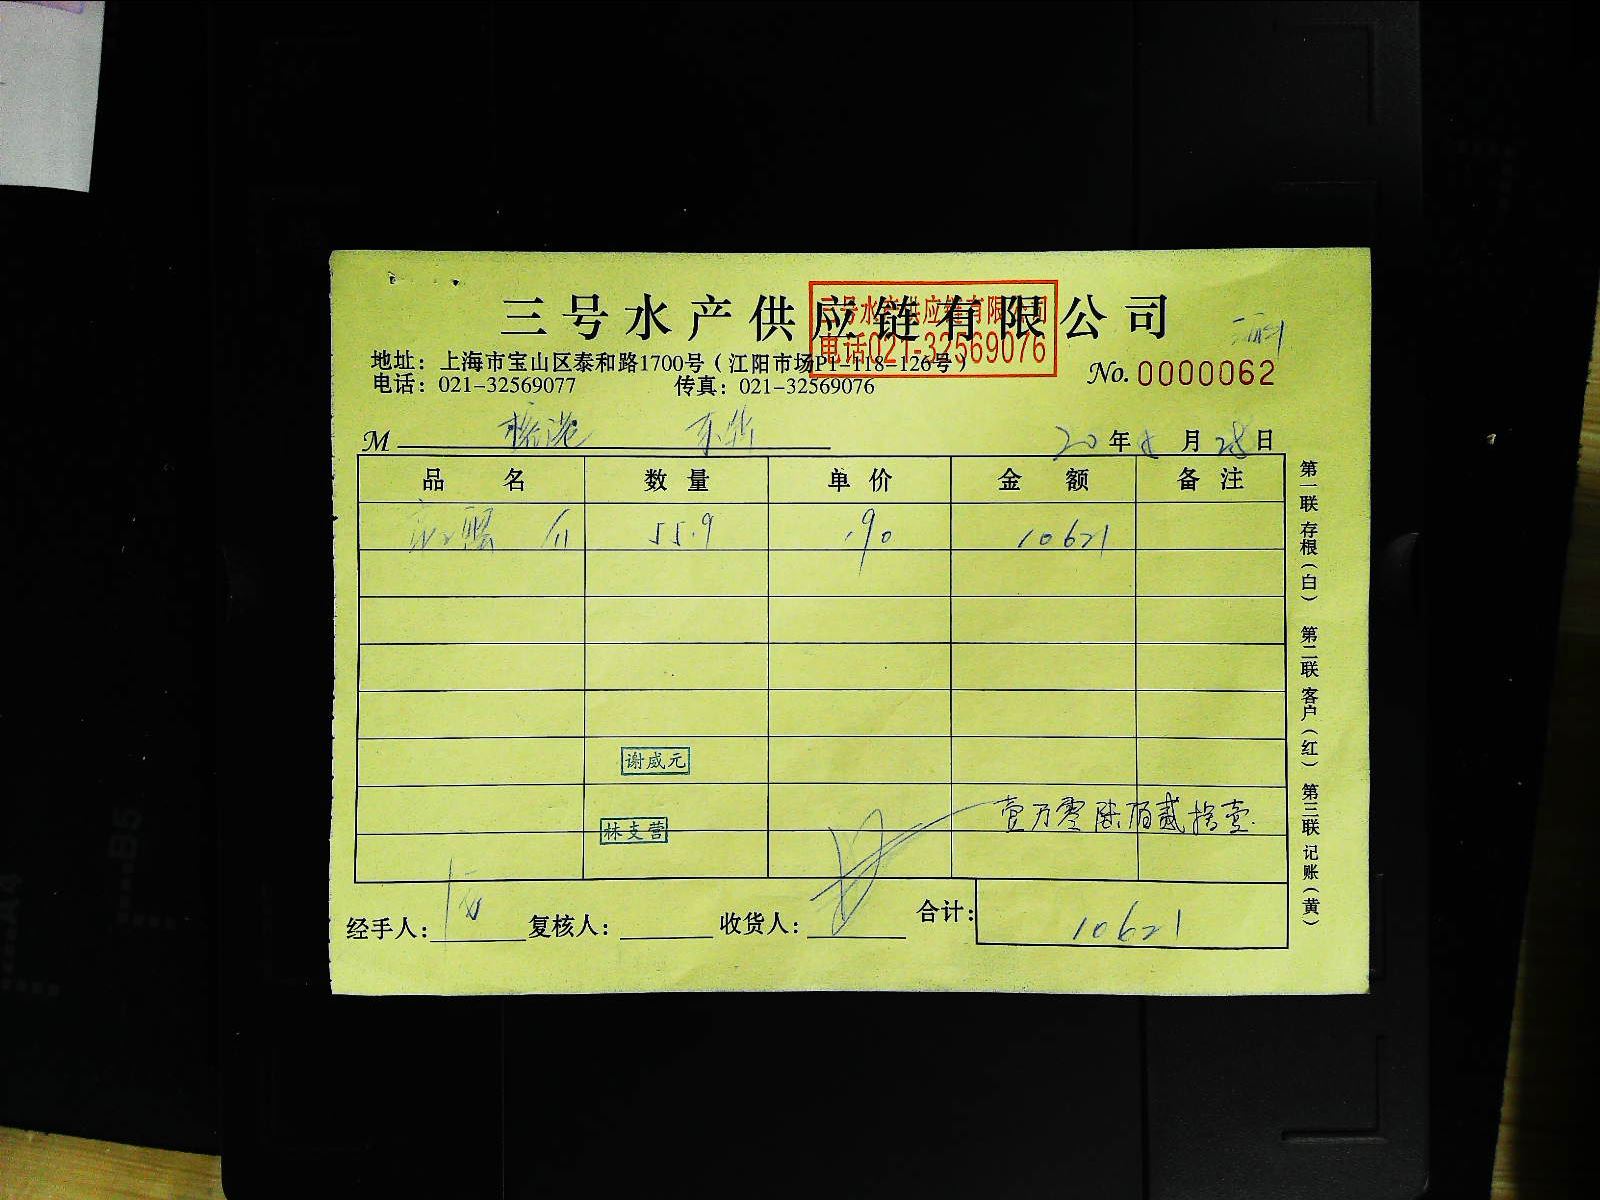 三号水产供应链有限公司
三号水产供应链有限公司
电话021-32569076
地址：上海市宝山区泰和路1700号（江阳市场P1-118-126号）
电话：021-32569077 传真：021-32569076
No.0000062
M
20年8月28日
品名 数量 单价 金额 备注
蟹 55.9 190 10621
谢威元
壹万零陆佰贰拾壹
林支营
经手人： 复核人： 收货人： 合计： 10621
第一联存根（白） 第二联客户（红） 第三联记账（黄）
B5
A4